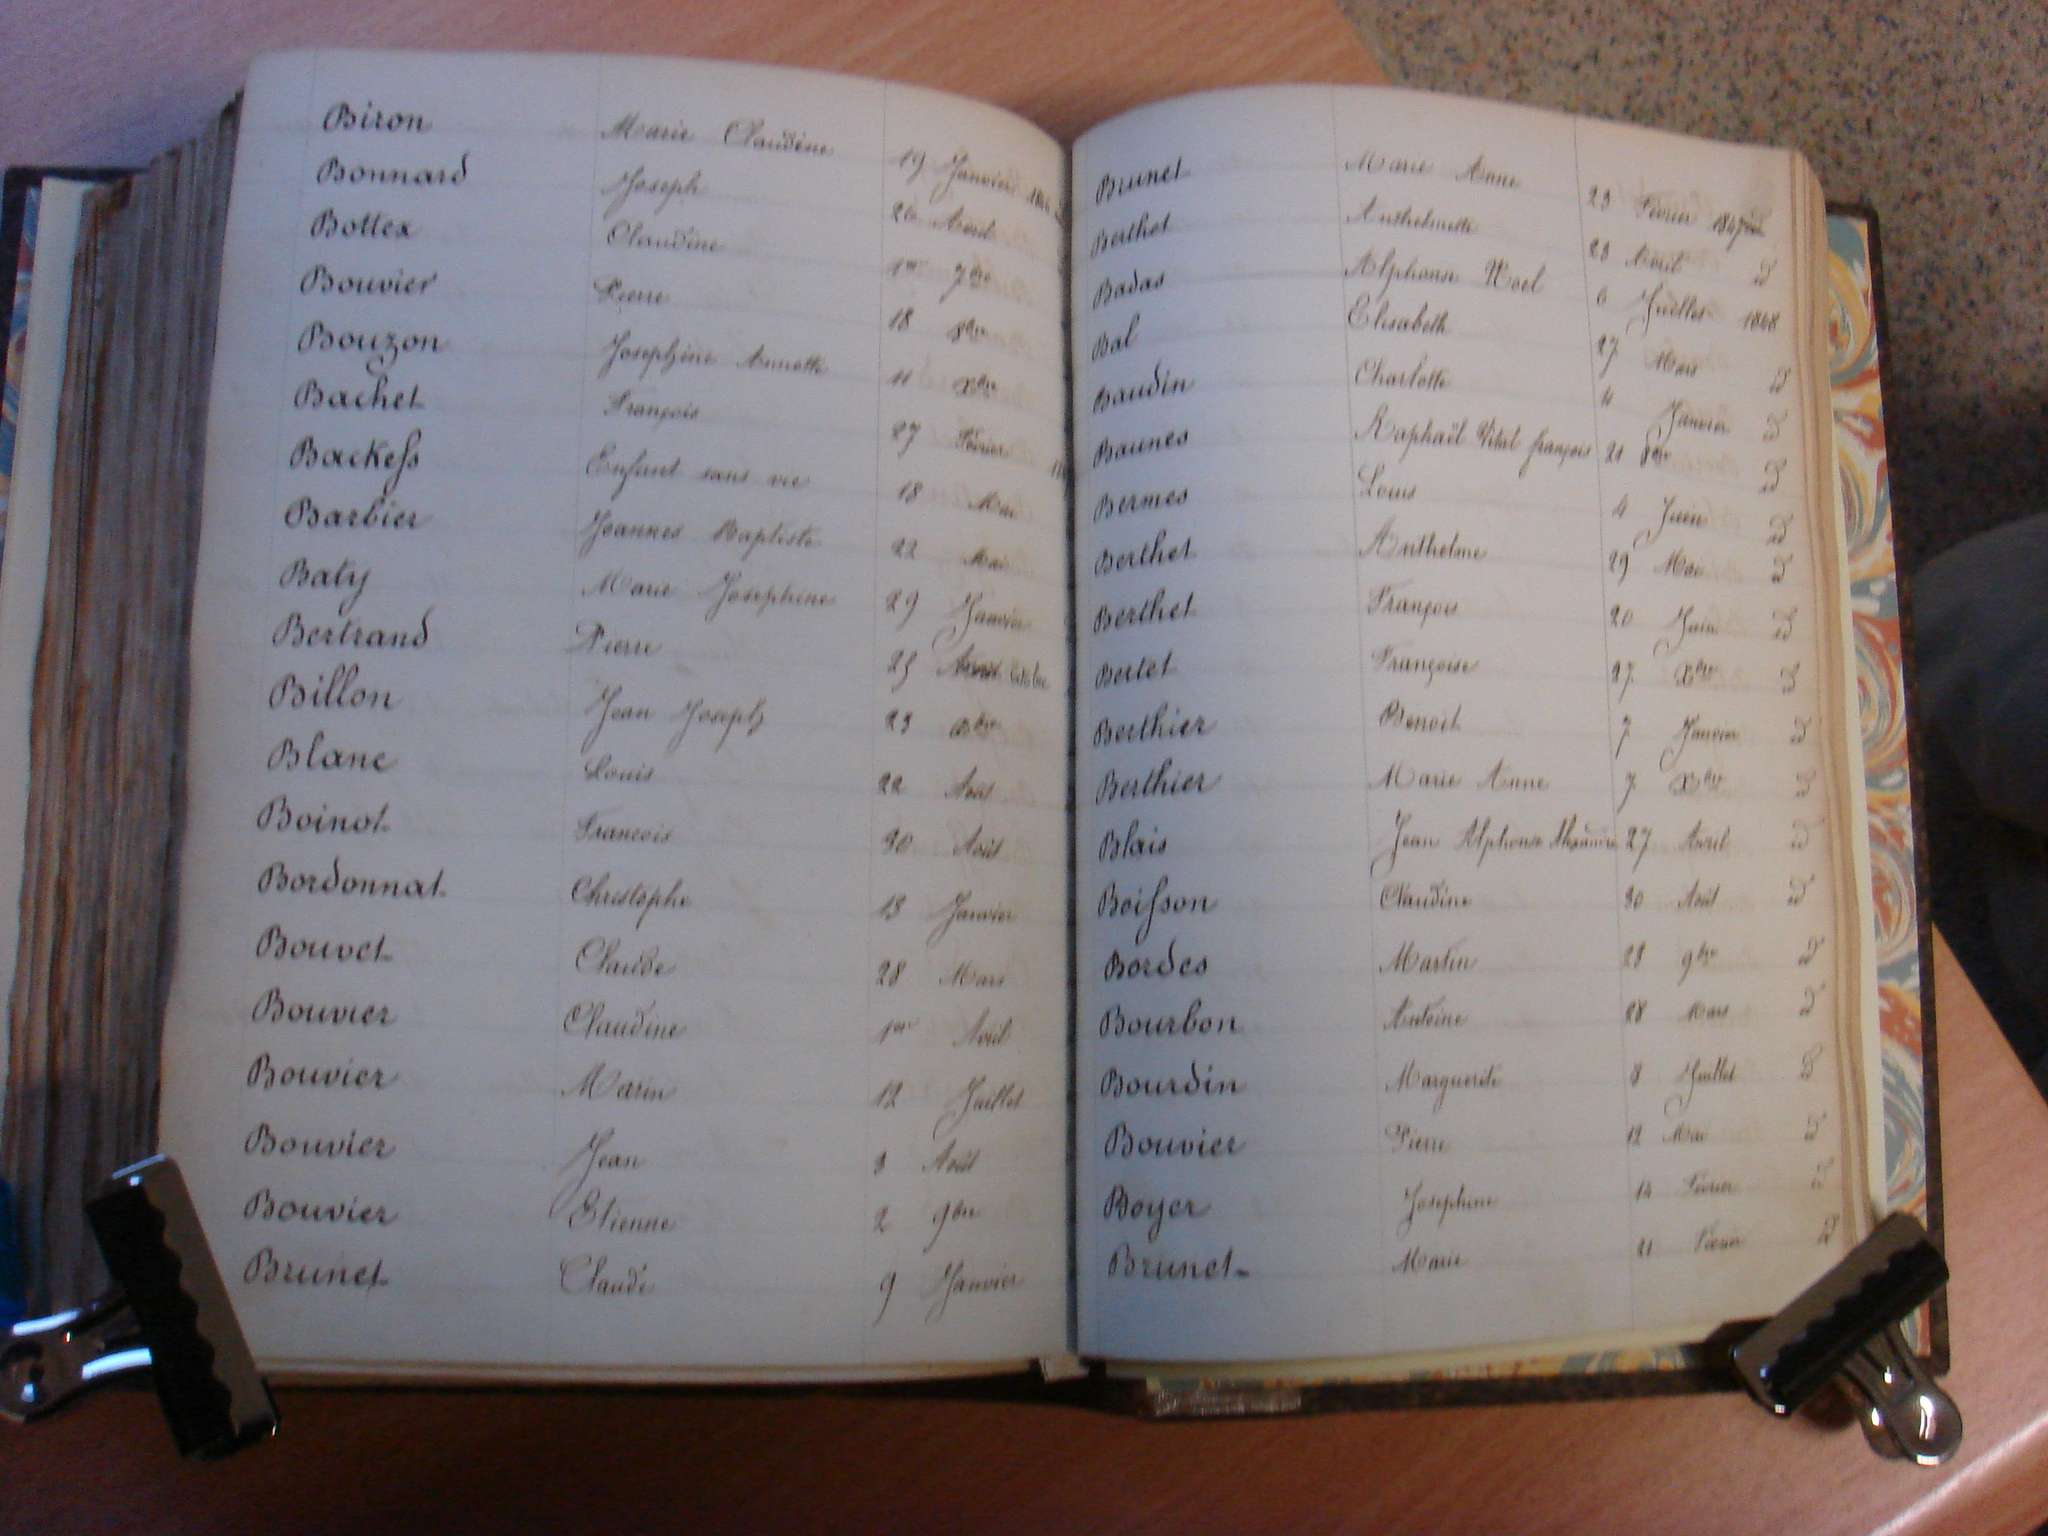 Biron Marie Claudine 19 Janvier
Bonnard Joseph 26 Avril
Bottex Claudine 1er 7bre
Bouvier Pierre 18 8bre
Bouzon Josephine Annette 11 Xbre
Bachet François 27 Février
Backess Enfant sans vie 18 Mai
Barbier Jeannes Baptiste 22 Mai
Baty Marie Josephine 29 Janvier
Bertrand Pierre 25
Billon Jean Joseph 23
Blanc Louis 22 Août
Boinot François 30 Août
Bordonnat Christophe 13 Janvier
Bouvet Claude 28 Mars
Bouvier Claudine 1er
Bouvier Marin 12 Juillet
Bouvier Jean 3 Août
Bouvier Etienne 2 9bre
Brunet Claude 9 Janvier
Brunet Marie Anne 23 Février 1867
Berthet Anthelmette 23 Avril d
Badas Alphonse Noel 6 Juillet 1868
Bal Elisabeth 27 Mars d
Baudin Charlotte Janvier d
Baunes Raphaël Vital françois 21 8bre d
Bermes Louis 4 Juin d
Berthet Anthelme 29 Mai d
Berthet François 20 Juin d
Bertet Françoise 27 Xbre d
Berthier Benoit 7 Janvier d
Berthier Marie Anne 7 Xbre d
Blais Jean Alphonse Alexandre 27 Avril d
Boisson Claudine 30 Août d
Bordes Martin 23 9bre d
Bourbon Antoine 28 Mars d
Bourdin Marguerite 8 Juillet d
Bouvier Pierre 12 Mai d
Boyer Josephine 14 Février d
Brunet Marie 21 Février d